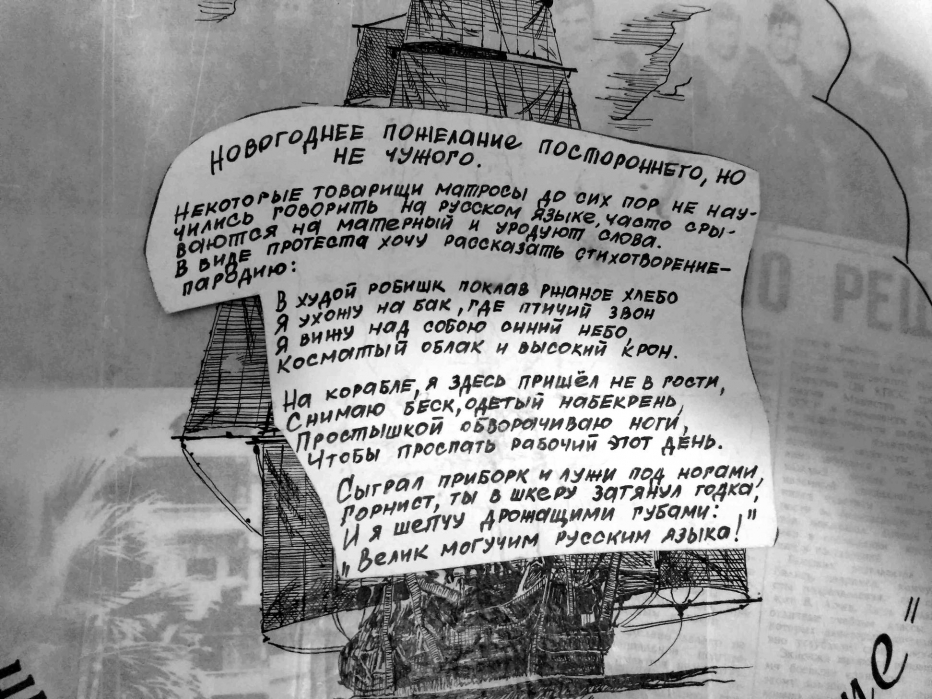 НОВОГОДНЕЕ ПОЖЕЛАНИЕ ПОСТОРОННЕГО, НО
НЕ ЧУЖОГО.
НЕКОТОРЫЕ ТОВАРИЩИ МАТРОСЫ ДО СИХ ПОР НЕ НАУ-
ЧИЛИСЬ ГОВОРИТЬ НА РУССКОМ ЯЗЫКЕ, ЧАСТО СРЫ-
ВАЮТСЯ НА МАТЕРНЫЙ И УРОДУЮТ СЛОВА.
В ВИДЕ ПРОТЕСТА ХОЧУ РАССКАЗАТЬ СТИХОТВОРЕНИЕ-
ПАРОДИЮ:
В ХУДОЙ РОБИШК ПОКЛАВ РЖАНОЕ ХЛЕБО
Я УХОЖУ НА БАК, ГДЕ ПТИЧИЙ ЗВОН
Я ВИЖУ НАД СОБОЮ СИНИЙ НЕБО,
КОСМАТЫЙ ОБЛАК И ВЫСОКИЙ КРОН.
НА КОРАБЛЕ, Я ЗДЕСЬ ПРИШЁЛ НЕ В ГОСТИ,
СНИМАЮ БЕСК, ОДЕТЫЙ НАБЕКРЕНЬ,
ПРОСТЫШКОЙ ОБВОРАЧИВАЮ НОГИ,
ЧТОБЫ ПРОСПАТЬ РАБОЧИЙ ЭТОТ ДЕНЬ.
СЫГРАЛ ПРИБОРК И ЛУЖИ ПОД НОГАМИ,
ГОРНИСТ, ТЫ В ШКЕРУ ЗАТЯНУЛ ГОДКА,
И Я ШЕПЧУ ДРОЖАЩИМИ ГУБАМИ:
„ВЕЛИК МОГУЧИМ РУССКИМ ЯЗЫКА!"
О РЕШ